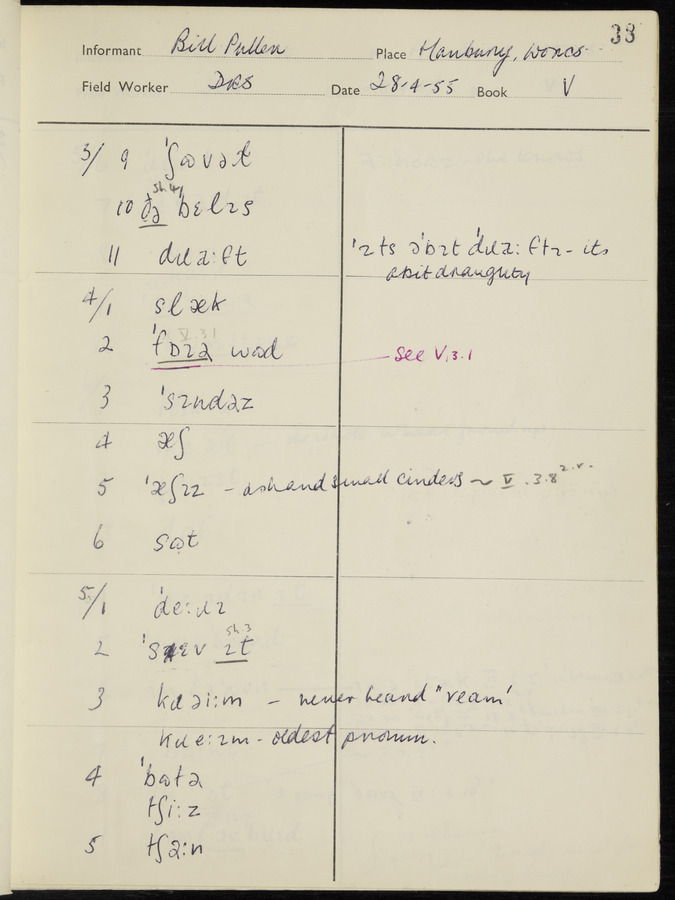 33
Informant Bill Pullen Place Hanbury, Worcs.
Field Worker DRS Date 28-4-55 Book V
3/ 9 ˈʃɷvəɫ
sh.4
10 ðə ˈbɛlɪs
11 dɹa:ft ˈɪts əˈbɪt ˈdɹa:ftɪ - its
a bit draughty
4/1 slæk
V.3.1
2 ˈfɒɪə wɷd see V.3.1
3 ˈsɪndəz
4 æʃ
5 ˈæʃɪz - ash and small cinders ~ V.3.8
6 sɷt
5/1 ˈde:ɹɪ
sh.3
2 ɪt
3 kɹəi:m - never heard "ream"
kɹe:ɪm - oldest pronun.
4 ˈbɷtə
tʃi:z
5 tʃə:n